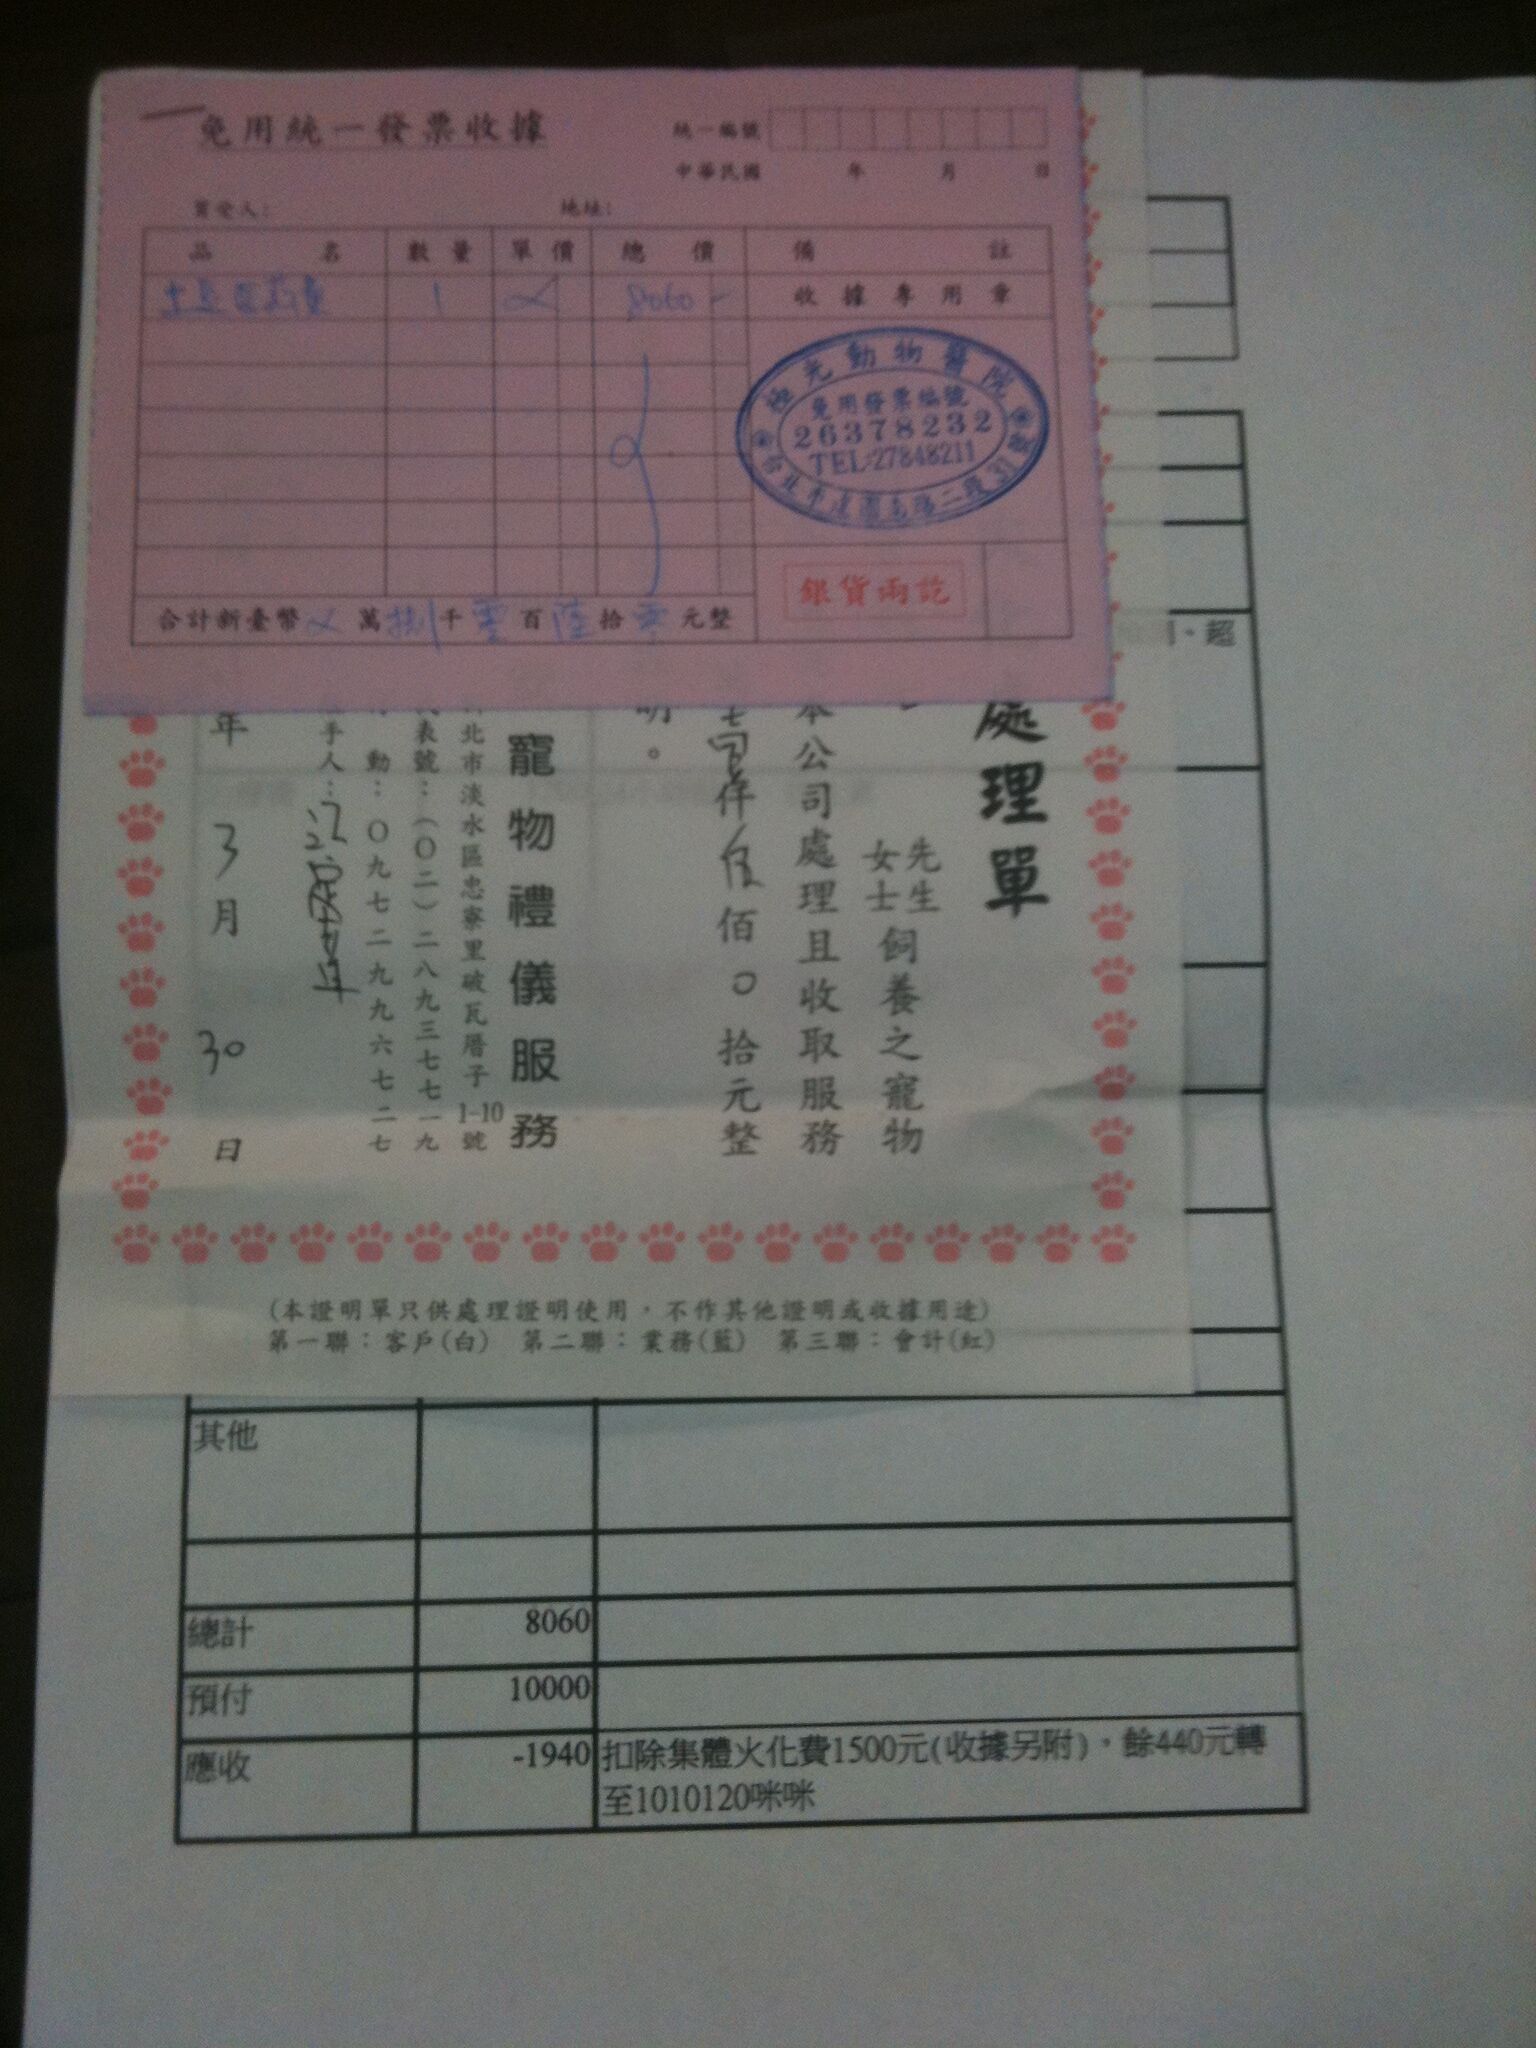 免用統一發票收據
統一編號
中華民國 年 月 日
買受人: 地址:
品名 數量 單價 總價 備註
1 8060 收據專用章
元動物醫院
免用發票編號
26378232
TEL:27848211
台北市建國南路二段31號
銀貨兩訖
合計新臺幣 萬捌千零百陸拾零元整
、超
處理單
先生
女士飼養之寵物
本公司處理且收取服務
仟伍佰0拾元整
明。
寵物禮儀服務
北市淡水區忠寮里破瓦厝子1-10號
表號:(〇二)二八九三七七一九
動:〇九七二九九六七二七
手人:
年3月30日
(本證明單只供處理證明使用,不作其他證明或收據用途)
第一聯:客戶(白) 第二聯:業務(藍) 第三聯:會計(紅)
其他
總計 8060
預付 10000
應收 -1940 扣除集體火化費1500元(收據另附),餘440元轉
至1010120咪咪